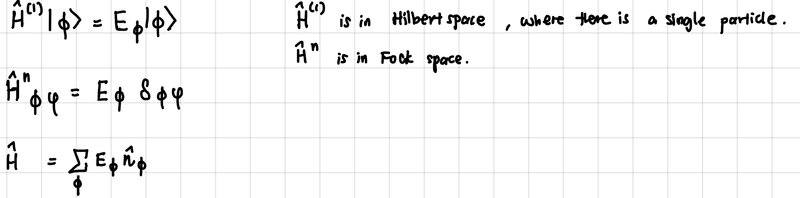 Ĥ⁽¹⁾|ϕ⟩ = E_ϕ|ϕ⟩
Ĥ⁽¹⁾ is in Hilbert space , where there is a single particle.
Ĥⁿ is in Fock space.
Ĥⁿ_ϕφ = E_ϕ δ_ϕφ
Ĥ = ∑_ϕ E_ϕ n̂_ϕ